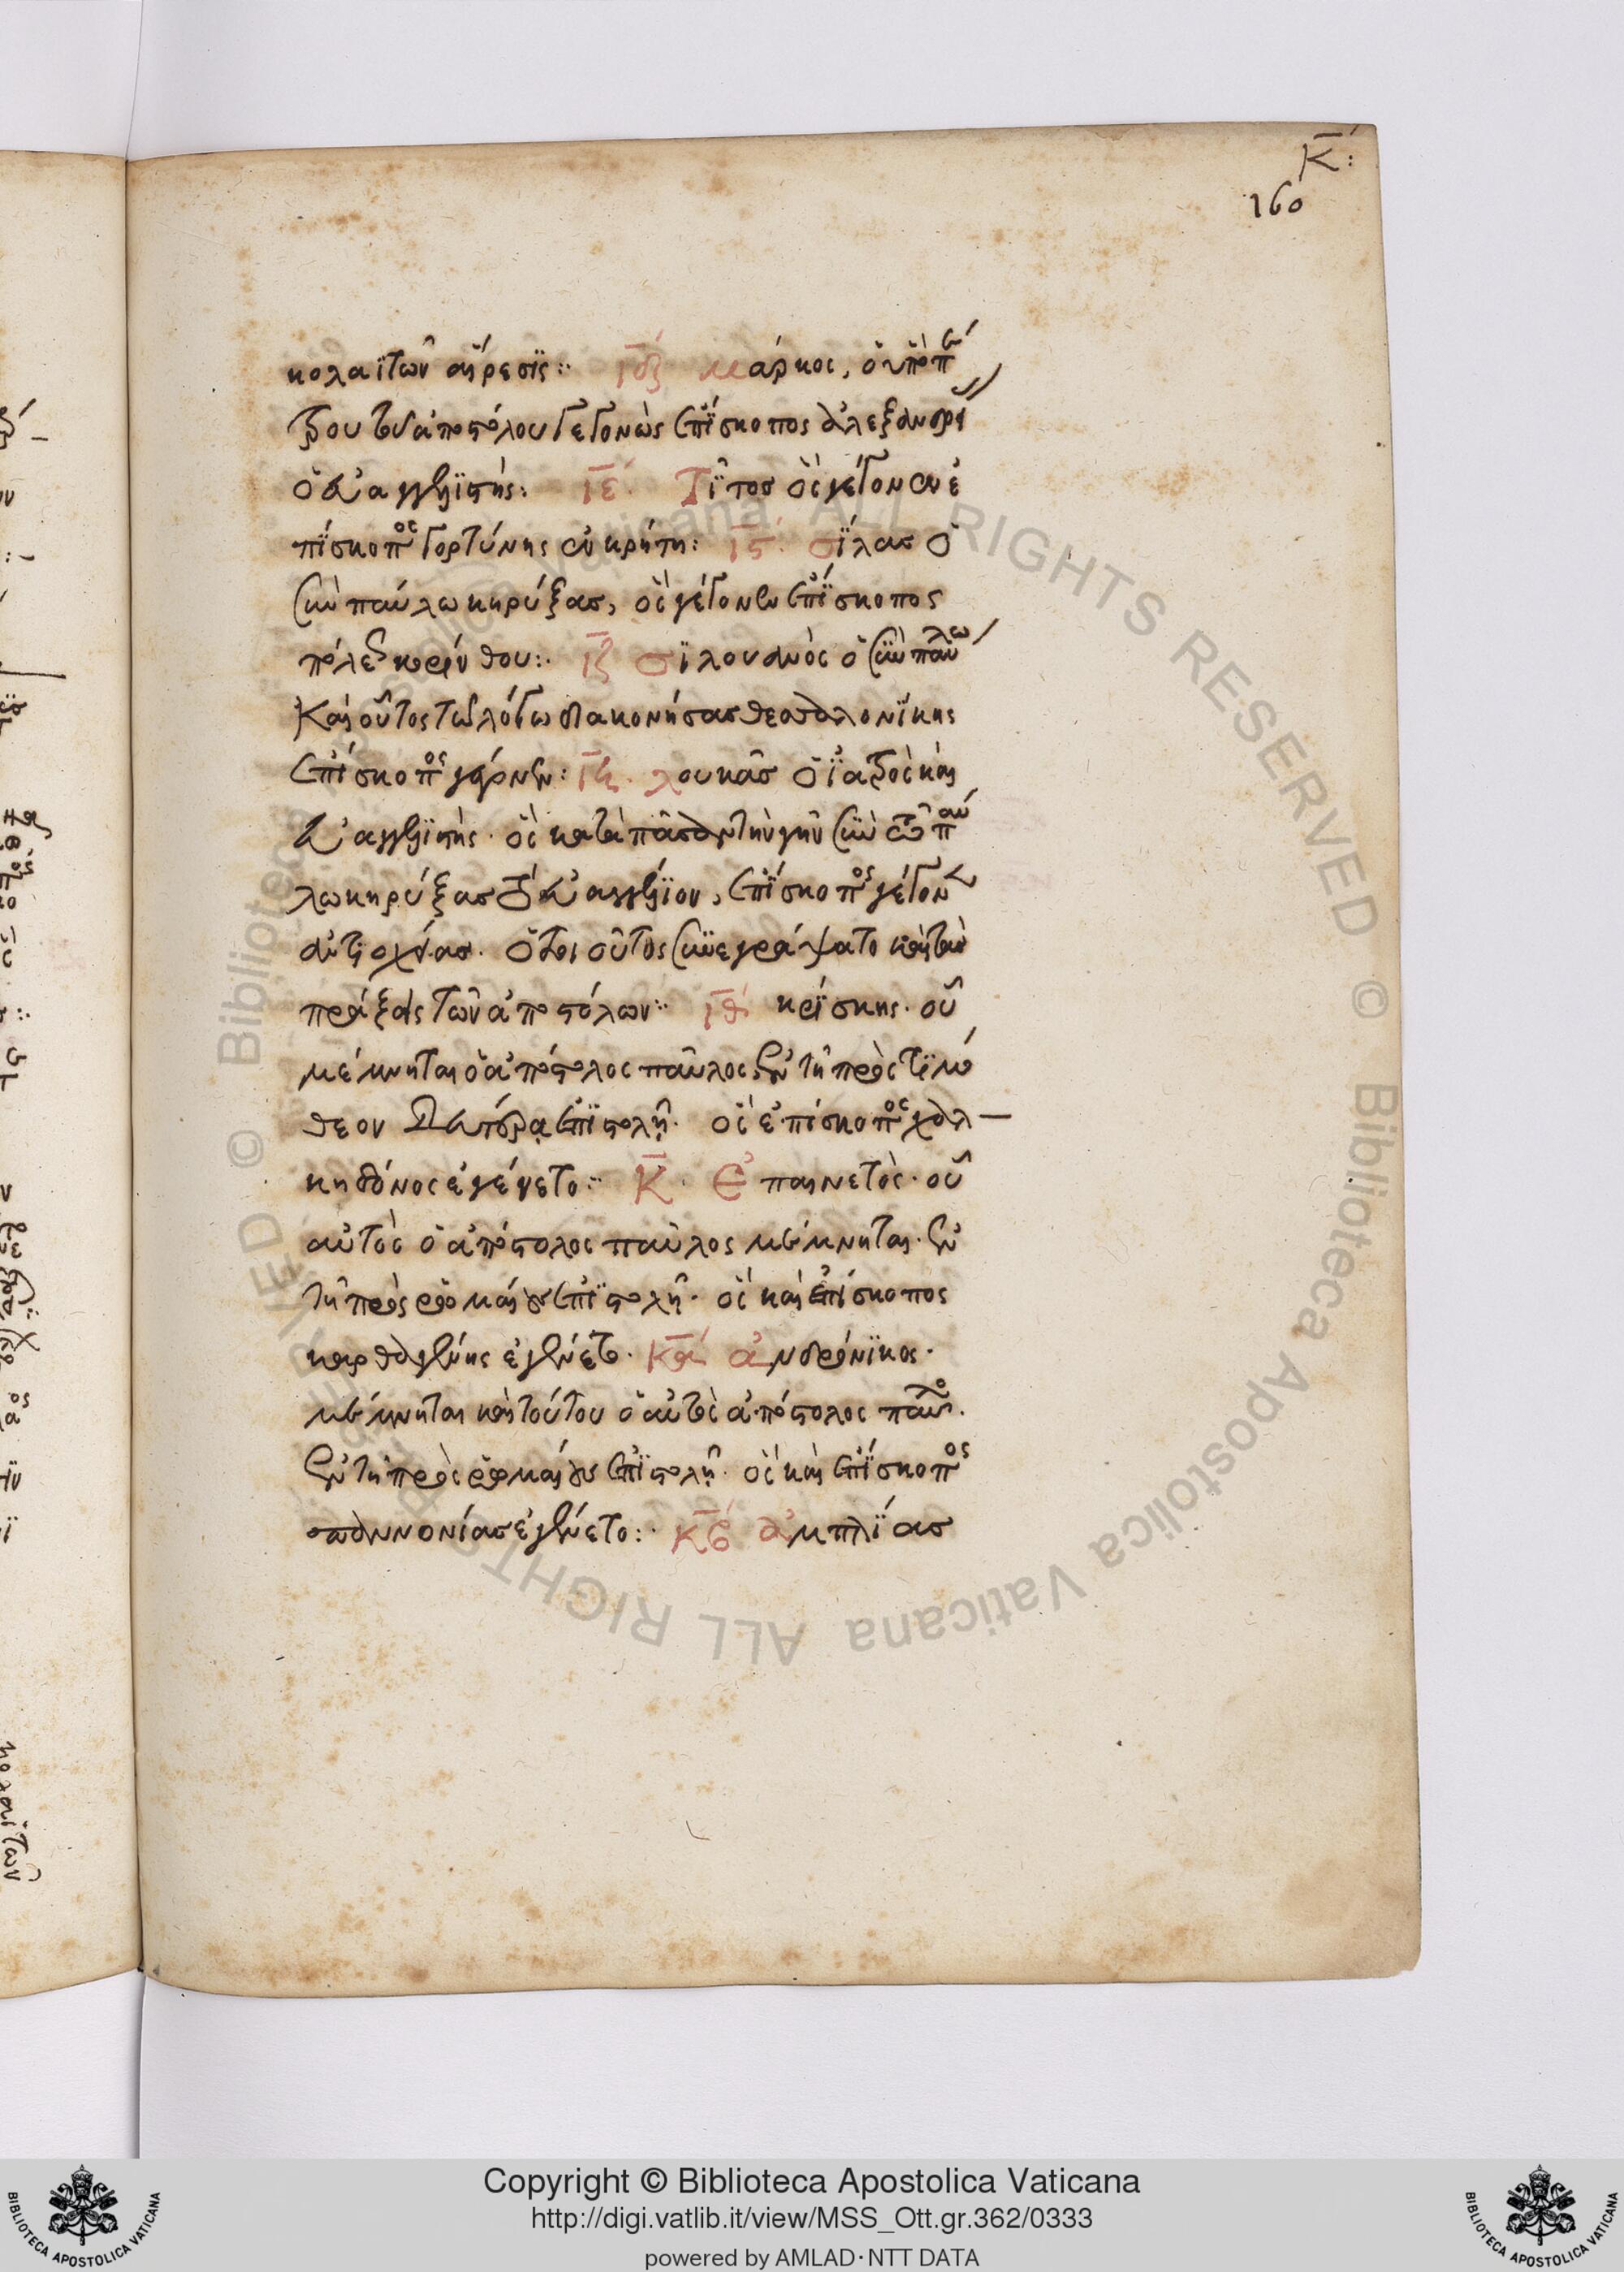 κ̄:
160
κολαϊτῶν αἵρεσϊς:: ιδ μάρκος, ὁ ὑπὸ πέ
τρου τοῦ ἀποστόλου γεγονὼς ἐπΐσκοπος ἀλεξανδρεί
ὁ εὐαγγελϊστής: ιε Τΐτοσ ὃς γέγονεν ἐ
πΐσκοπος Γορτύνης ἐν κρήτη: ις σΐλασ ὁ
σὺν παύλω κηρύξασ, ὃς γέγονεν ἐπΐσκοπος
πόλεως κορίνθου:. ιζ σϊλουανὸς ὁ σὺν παύλω
Καὶ οὗτος τῶ λόγω διακονήσασ θεσσαλονΐκης
ἐπίσκοπος γέγονεν: ιη λουκᾶσ ὁ ϊατρὸς καὶ
εὐαγγελϊστής. ὃς κατὰ πᾶσαν τὴν γῆν σὺν τῶ παύ
λω κηρύξασ τὸ εὐαγγέλϊον, ἐπΐσκοπος γέγονεν
ἀντιοχείασ. ὅστις οὗτος συνεγράψατο καὶ τὰσ
πράξεις τῶν ἀποστόλων:: ιθ κρΐσκης. οὗ
μέμνηται ὁ ἀπόστολος παῦλος ἐν τῆ πρὸς τϊμό
θεον δευτέρα ἐπϊστολῆ. ὃς ἐπίσκοπος χαλ
κηδόνος ἐγένετο:: Κ. Ἐπαινετὸς. οὗ
αὐτὸς ὁ ἀπόστολος παῦλος μέμνηται. ἐν
τῆ πρὸς ρωμαίους ἐπϊστολῆ. ὃς καὶ ἐπίσκοπος
καρθαγένης ἐγένετο. κα ἀνδρόνϊκος.
μέμνηται καὶ τούτου ὁ αὐτὸς ἀπόστολος παῦλος.
ἐν τῆ πρὸς ρωμαίους ἐπϊστολῆ. ὃς καὶ ἐπΐσκοπος
παννονίασ ἐγένετο:. κβ ἀμπλΐασ
Copyright © Biblioteca Apostolica Vaticana
http://digi.vatlib.it/view/MSS_Ott.gr.362/0333
powered by AMLAD·NTT DATA